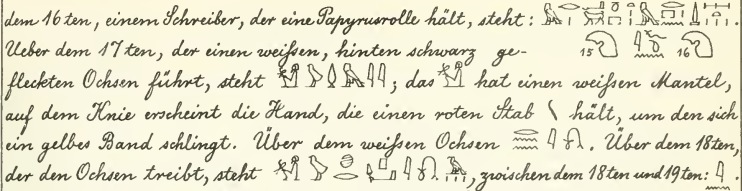 dem 16ten, einem Schreiber, der eine Papyrusrolle hält, steht:
Ueber dem 17ten, der einen weißen, hinten schwarz ge- 15 16
fleckten Ochsen führt, steht ; das hat einen weißen Mantel,
auf dem Knie erscheint die Hand, die einen roten Stab hält, um den sich
ein gelbes Band schlingt. Über dem weißen Ochsen . Über dem 18ten,
der den Ochsen treibt, steht , zwischen dem 18ten und 19ten: .